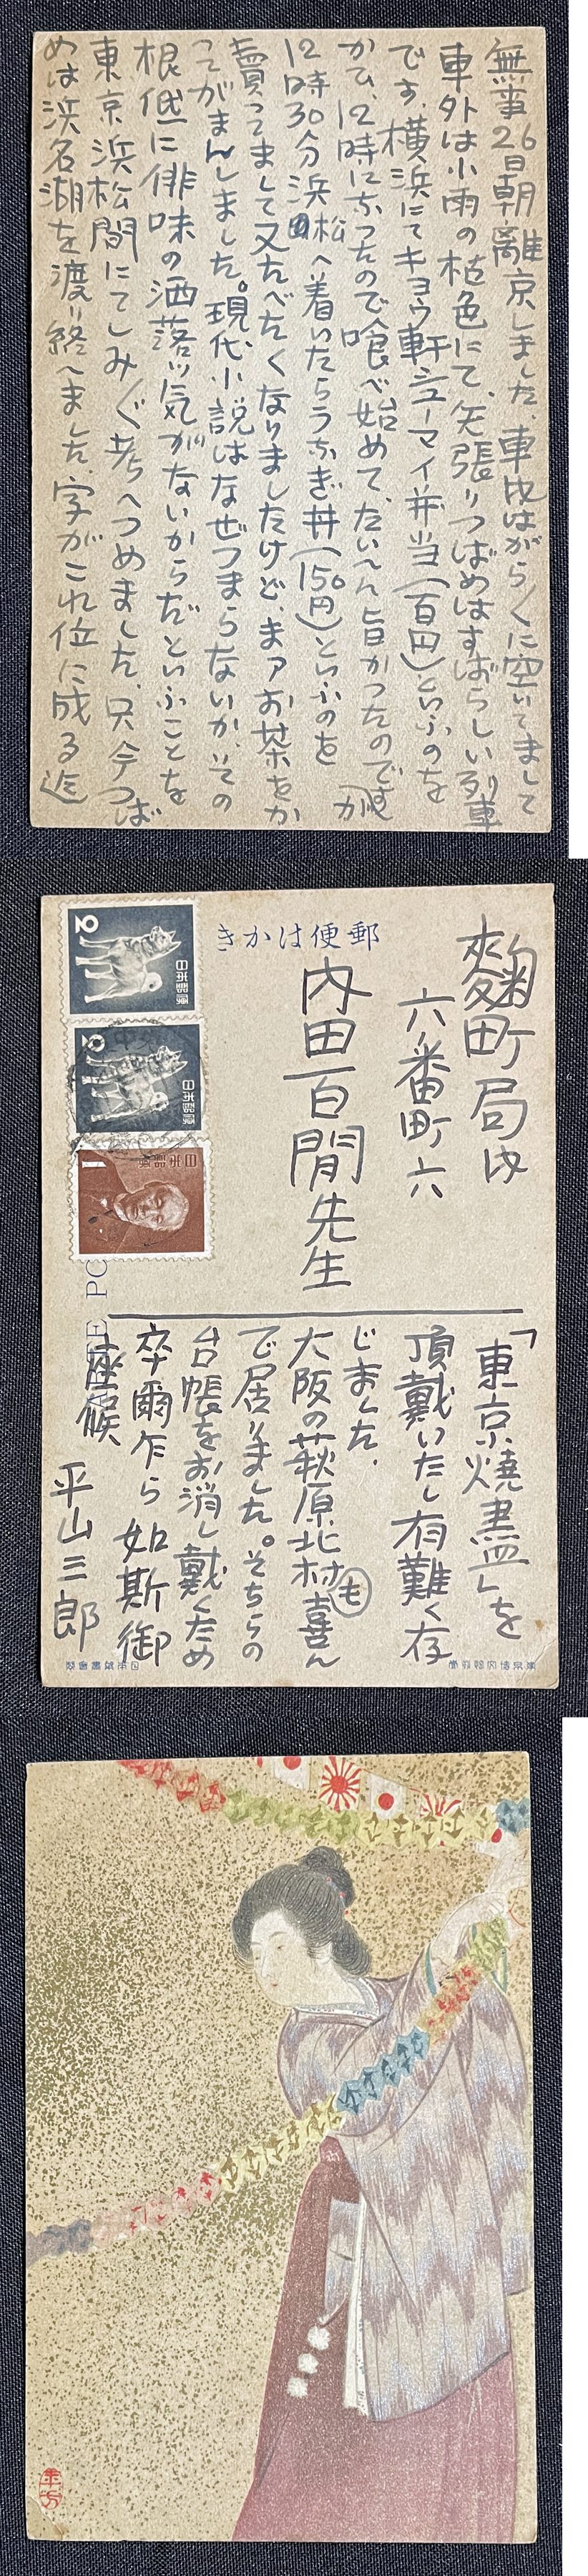 無事26日朝離京しました、車内はがら〳〵に空いてまして
車外は小雨の植色にて、矢張りつばめはすばらしい列車
です、横浜にてキヨウ軒シューマイ弁当(百円)といふのを
かひ、12時になつたので喰べ始めて、たいへん旨かつたのですが
12時30分浜松へ着いたらうなぎ丼(150円)といふのを
賣ってまして又たべたくなりましたけど、まアお茶をか
ってがまんしました。現代小説はなぜつまらないか、その
根低に俳味の洒落ッ気がないからだといふことを
東京浜松間にてしみ〲考へつめました、只今つば
めは浜名湖を渡り終へました、字がこれ位に成る迄
郵便はかき
麹町局内
六番町六
内田百閒先生
「東京焼盡」を
頂戴いたし有難く存
じました.
大阪の萩原北村も喜ん
で居りました。そちらの
台帳をお消し戴くため
卒爾乍ら如斯御
座候
平山三郎
2
日本郵便
2
日本郵便
1
日本郵便
ARTE PO
半方